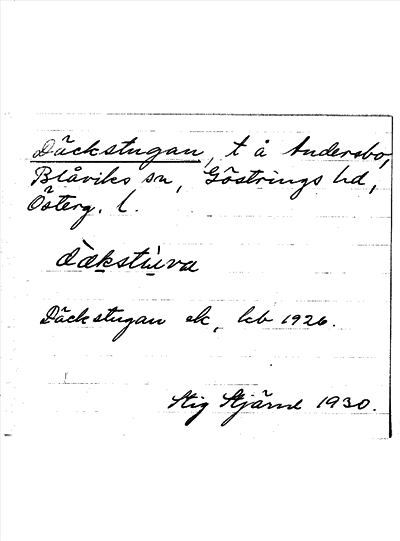 Däckstugan, t å Andersbo,
Blåviks sn, Göstrings hd,
Österg. l.
dàkstùva
Däckstugan ek, kb 1926.
Stig Stjärnd 1930.